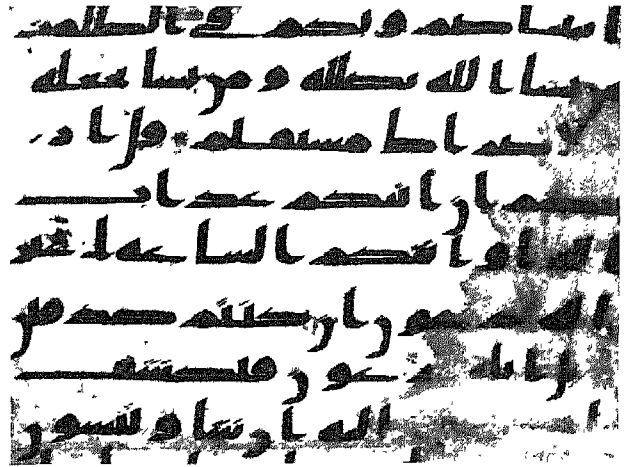 ايتنا صم وبكم في الظلمت
من يشا الله يضلله ومن يشا يجعله
صراط مستقيم قل ار
يتكم ان اتيكم عذاب
الله او اتتكم الساعة اغير
الله تدعون ان كنتم صدقين
اياه تدعون فيكشف
اليه ان شا وتنسون